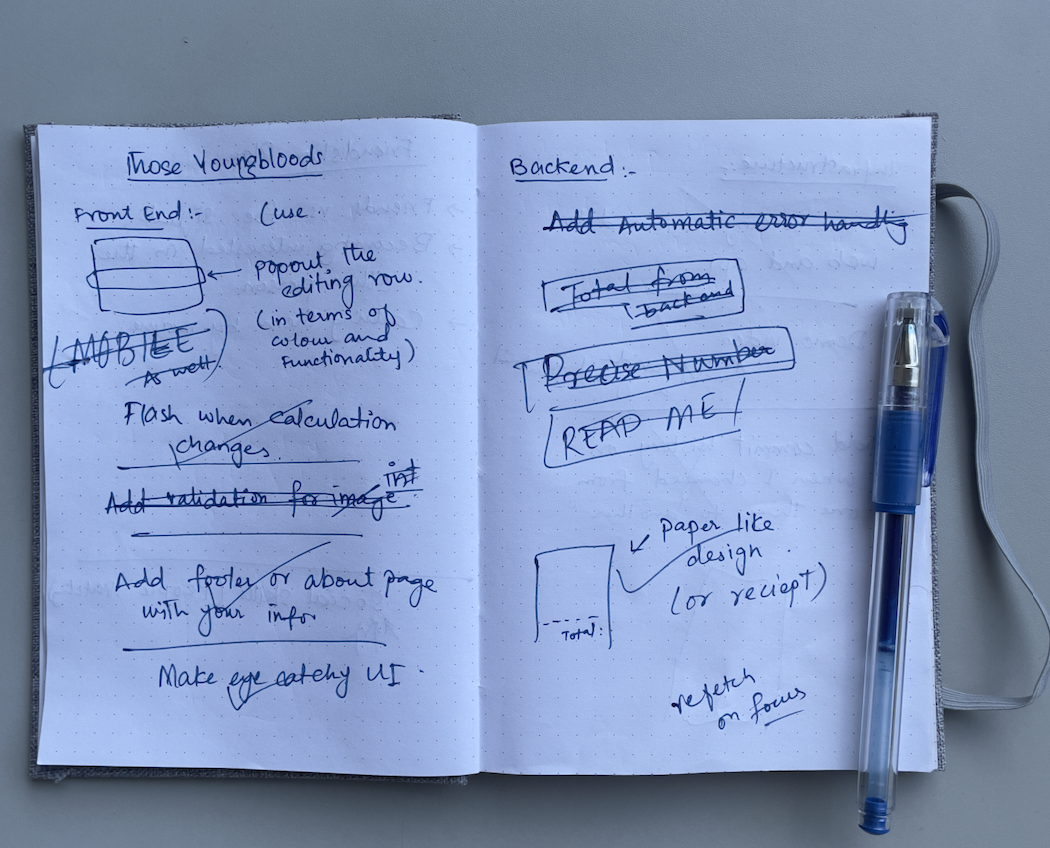 Those Youngbloods
Front End:-
(use.
popout the
editing row.
(in terms of
colour and
functionality)
(MOBILE
As well)
Flash when calculation
changes.
Add validation for image
int
Add footer or about page
with your info.
Make eye catchy UI.
Backend:-
Add Automatic error handlig
Total from
backend
Precise Number
READ ME
paper like
design.
(or reciept)
Total:
refetch
on focus